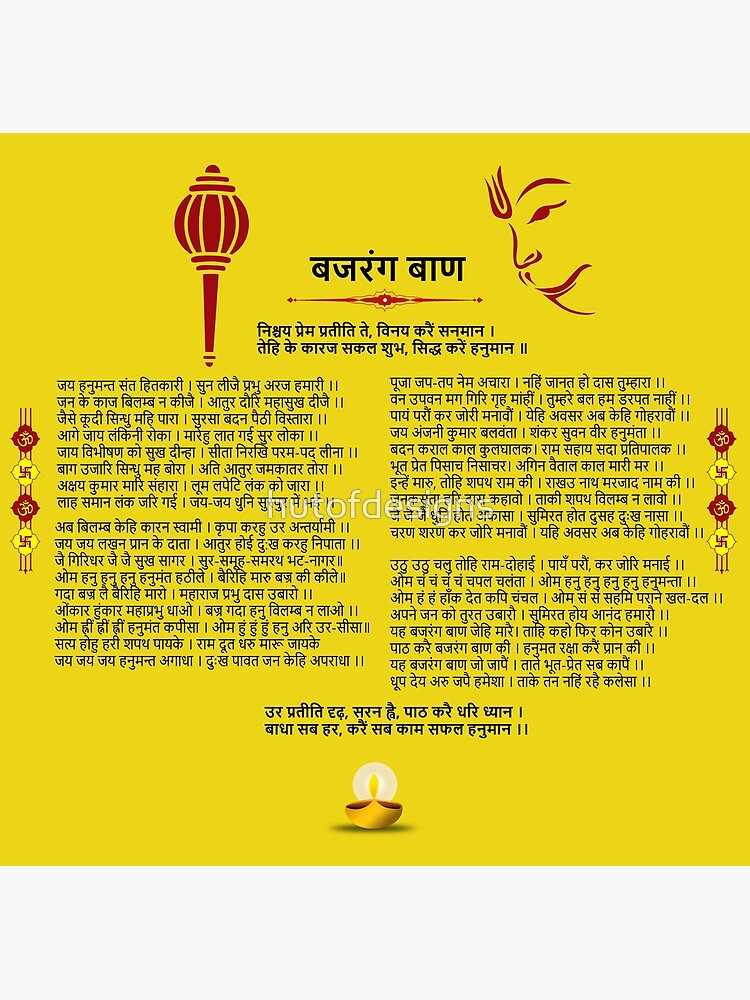 बजरंग बाण
निश्चय प्रेम प्रतीति ते, विनय करैं सनमान ।
तेहि के कारज सकल शुभ, सिद्ध करें हनुमान ॥
जय हनुमन्त संत हितकारी । सुन लीजै प्रभु अरज हमारी ।।
जन के काज बिलम्ब न कीजै । आतुर दौरि महासुख दीजै ।।
जैसे कूदी सिन्धु महि पारा । सुरसा बदन पैठी विस्तारा ।।
आगे जाय लंकिनी रोका । मारेहु लात गई सुर लोका ।।
जाय विभीषण को सुख दीन्हा । सीता निरखि परम-पद लीना ।।
बाग उजारि सिन्धु मह बोरा । अति आतुर जमकातर तोरा ।।
अक्षय कुमार मारि संहारा । लूम लपेटि लंक को जारा ।।
लाह समान लंक जरि गई । जय-जय धुनि सुरपुर में भई ।।
अब बिलम्ब केहि कारन स्वामी । कृपा करहु उर अन्तर्यामी ।।
जय जय लखन प्रान के दाता । आतुर होई दु:ख करहु निपाता ।।
जै गिरिधर जै जै सुख सागर । सुर-समूह-समरथ भट-नागर॥
ओम हनु हनु हनु हनुमंत हठीले । बैरिहि मारु बज्र की कीले॥
गदा बज्र लै बैरिहि मारो । महाराज प्रभु दास उबारो ।।
ओंकार हुंकार महाप्रभु धाओ । बज्र गदा हनु विलम्ब न लाओ ।।
ओम ह्नीं ह्नीं ह्नीं हनुमंत कपीसा । ओम हुं हुं हुं हनु अरि उर-सीसा॥
सत्य होहु हरी शपथ पायके । राम दूत धरु मारू जायके
जय जय जय हनुमन्त अगाधा । दु:ख पावत जन केहि अपराधा ।।
पूजा जप-तप नेम अचारा । नहिं जानत हो दास तुम्हारा ।।
वन उपवन मग गिरि गृह मांहीं । तुम्हरे बल हम डरपत नाहीं
पायं परौं कर जोरी मनावौं । येहि अवसर अब केहि गोहरावौं ।।
जय अंजनी कुमार बलवंता । शंकर सुवन वीर हनुमंता ।।
बदन कराल काल कुलघालक। राम सहाय सदा प्रतिपालक ।।
भूत प्रेत पिसाच निसाचर। अगिन वैताल काल मारी मर ।।
इन्हें मारु, तोहि शपथ राम की । राखउ नाथ मरजाद नाम की ।।
जनकसुता हरि दास कहावो । ताकी शपथ विलम्ब न लावो ।।
जै जै जै धुनि होत अकासा । सुमिरत होत दुसह दु:ख नासा ।।
चरण शरण कर जोरि मनावौं । यहि अवसर अब केहि गोहरावौं ।।
उठु उठु चलु तोहि राम-दोहाई । पायँ परौं, कर जोरि मनाई ।।
ओम चं चं चं चं चपल चलंता । ओम हनु हनु हनु हनु हनुमन्ता ।।
ओम हं हं हाँक देत कपि चंचल । ओम सं सं सहमि पराने खल-दल ।।
अपने जन को तुरत उबारौ । सुमिरत होय आनंद हमारौ ।।
यह बजरंग बाण जेहि मारै। ताहि कहो फिर कोन उबारै ।।
पाठ करै बजरंग बाण की । हनुमत रक्षा करैं प्रान की ।।
यह बजरंग बाण जो जापैं । ताते भूत-प्रेत सब कापैं ।।
धूप देय अरु जपै हमेशा । ताके तन नहिं रहै कलेसा ।।
उर प्रतीति दृढ़, सरन ह्वै, पाठ करै धरि ध्यान ।
बाधा सब हर, करैं सब काम सफल हनुमान ।।
hutofdesigns